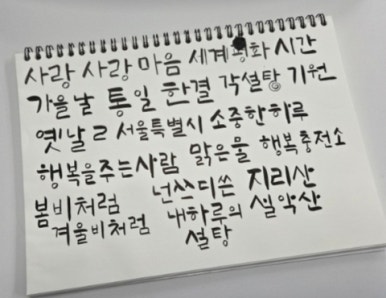 사랑 사랑 마음 세계평화 시간
가을날 통일 한결 각설탕 기원
옛날 2 서울특별시 소중한하루
행복을주는사람 맑은물 행복충전소
봄비처럼 넌쓰디쓴 지리산
겨울비처럼 내하루의 설악산
설탕